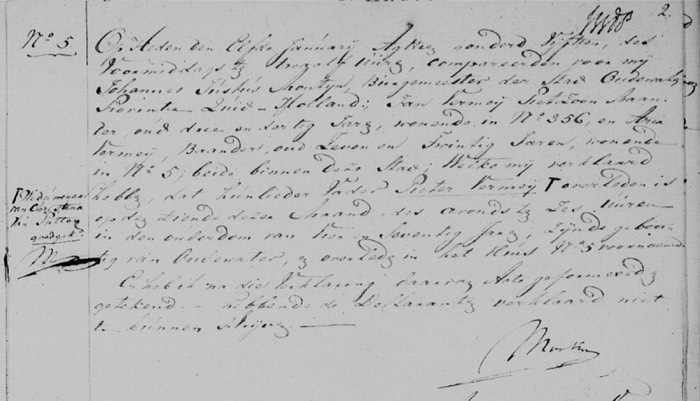 2.
N° 5.
Op Heden den Elfde Januarij Agttien honderd Vijftien, des
Voormiddags te Uuren, compareerden voor my
Johannes Justus Montijn, Burgemeester der Stad Oudewater,
Provintie Zuid-Holland; Jan Vermeij Pieterzoon
oud drie en dertig Jaren, wonende in N° 356, en Arie
Vermeij, Baander, oud Zeven en Twintig Jaren, wonende
in N° 5; beide binnen deze Stad; Welke my verklaard
hebben, dat hunlieder Vader Pieter Vermeij overleden is
op den Tiende dezer Maand des avonds te Zes Uuren
in den ouderdom van Vier en Seventig Jaren; zijnde geboor-
tig van Oudewater, en overleden in het Huis N° 5 voornoemd
van Christina
goedgek.
En heb ik na die Verklaring daarvan Acte geformeerd en
getekend — hebbende de Declaranten verklaard niet
te kunnen schrijven —
Montijn